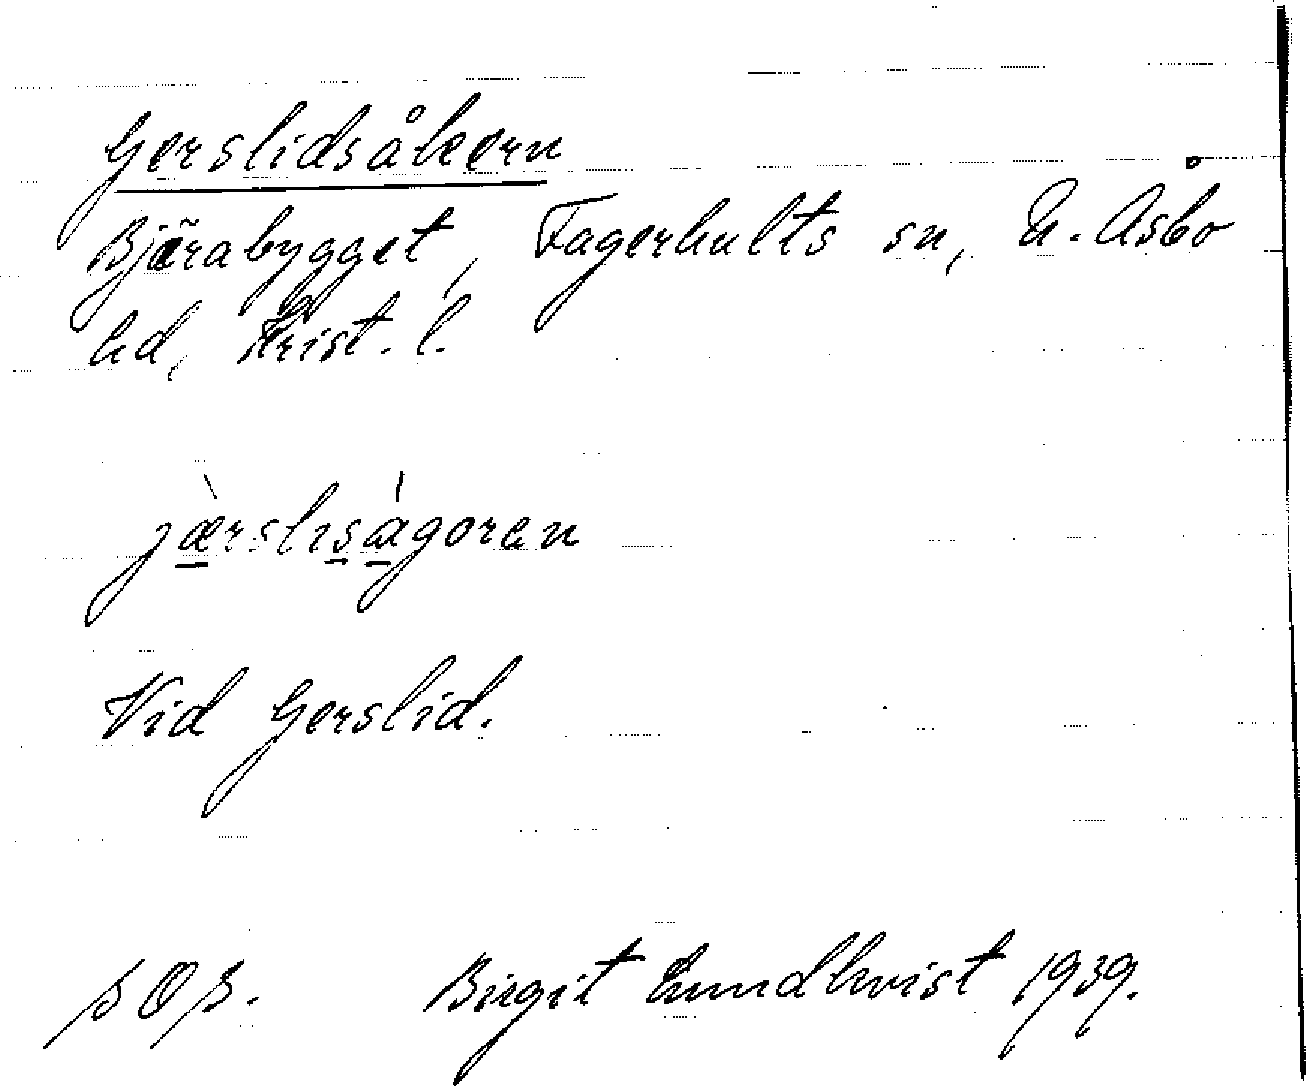 Gerslidsåkern
Bjärabygget, Fagerhults sn, N. Åsbo
hd, Krist. l.
jæ̀rslıságoren
Vid Gerslid.
Birgit Lundkvist 1939.